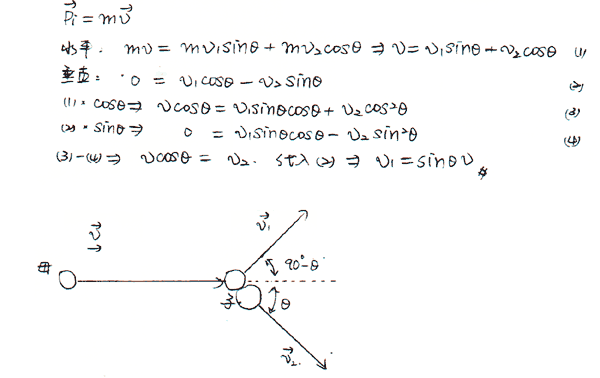 P⃗i = mv⃗
水平: mv = mv₁sinθ + mv₂cosθ ⇒ v = v₁sinθ + v₂cosθ (1)
垂直: 0 = v₁cosθ − v₂sinθ (2)
(1) × cosθ ⇒ vcosθ = v₁sinθcosθ + v₂cos²θ (3)
(2) × sinθ ⇒ 0 = v₁sinθcosθ − v₂sin²θ (4)
(3)-(4) ⇒ vcosθ = v₂. 代入(2) ⇒ v₁ = sinθv
v⃗₁
v⃗
90°-θ
母
子
θ
v⃗₂